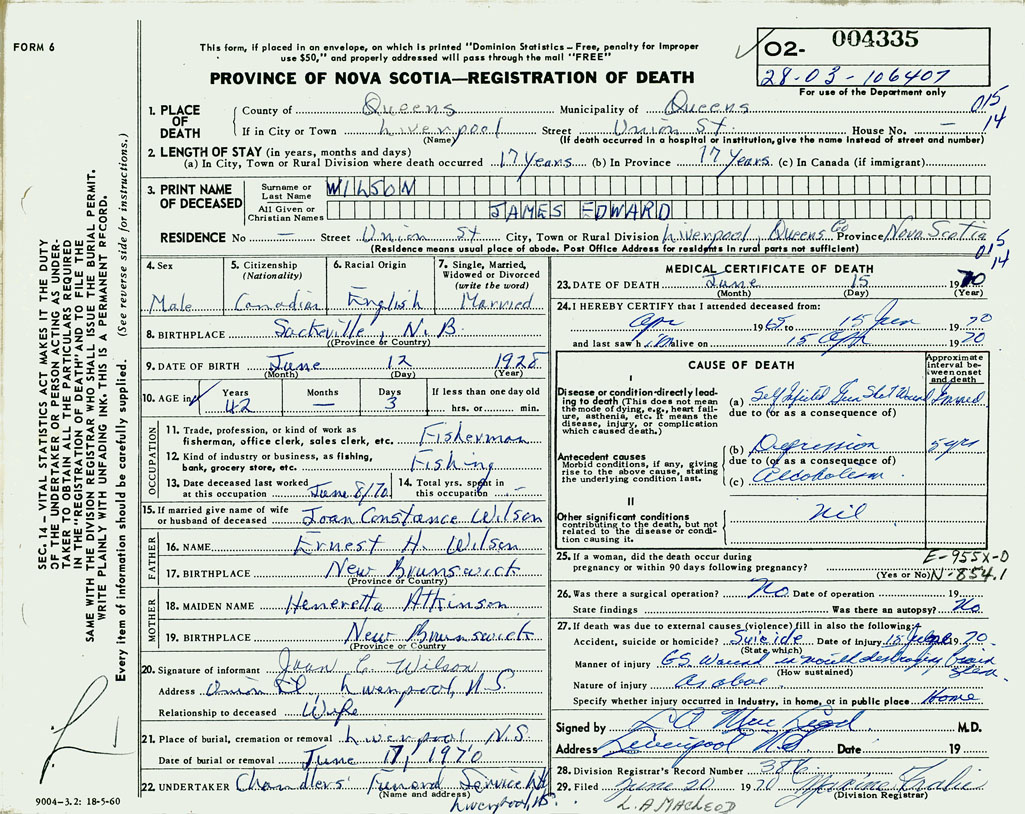 FORM 6
This form, if placed in an envelope, on which is printed "Dominion Statistics – Free, penalty for improper
use $50," and properly addressed will pass through the mail "FREE"
PROVINCE OF NOVA SCOTIA—REGISTRATION OF DEATH
02- 004335
28-03-106407
For use of the Department only
015
14
1. PLACE OF DEATH
County of Queens Municipality of Queens
If in City or Town Liverpool Street Union St. House No. –
(Name) (If death occurred in a hospital or institution, give the name instead of street and number)
2. LENGTH OF STAY (in years, months and days)
(a) In City, Town or Rural Division where death occurred 17 Years (b) In Province 17 Years (c) In Canada (if immigrant)
3. PRINT NAME OF DECEASED
Surname or Last Name WILSON
All Given or Christian Names JAMES EDWARD
RESIDENCE No – Street Union St City, Town or Rural Division Liverpool, Queens Co Province Nova Scotia
(Residence means usual place of abode. Post Office Address for resident in rural parts not sufficient)
015
14
4. Sex
Male
5. Citizenship (Nationality)
Canadian
6. Racial Origin
English
7. Single, Married, Widowed or Divorced (write the word)
Married
8. BIRTHPLACE Sackville, N.B.
(Province or Country)
9. DATE OF BIRTH June 12 1928
(Month) (Day) (Year)
10. AGE in
Years 42
Months –
Days 3
If less than one day old
hrs. or min.
OCCUPATION
11. Trade, profession, or kind of work as
fisherman, office clerk, sales clerk, etc. Fisherman
12. Kind of industry or business, as fishing,
bank, grocery store, etc. Fishing
13. Date deceased last worked
at this occupation June 8/70
14. Total yrs. spent in
this occupation –
15. If married give name of wife
or husband of deceased Joan Constance Wilson
FATHER
16. NAME Ernest H. Wilson
17. BIRTHPLACE New Brunswick
(Province or Country)
MOTHER
18. MAIDEN NAME Heneretta Atkinson
19. BIRTHPLACE New Brunswick
(Province or Country)
20. Signature of informant Joan C. Wilson
Address Union St, Liverpool, N.S.
Relationship to deceased Wife
21. Place of burial, cremation or removal Liverpool N.S.
Date of burial or removal June 17, 1970
22. UNDERTAKER Chandlers' Funeral Service
(Name and address) Liverpool, NS.
MEDICAL CERTIFICATE OF DEATH
23. DATE OF DEATH June 15 1970
(Month) (Day) (Year)
24. I HEREBY CERTIFY that I attended deceased from:
Apr 1965 to 15 Jun 1970
and last saw him alive on 15 Apr 1970
CAUSE OF DEATH
Approximate interval between onset and death
I
Disease or condition directly leading to death (This does not mean the mode of dying, e.g., heart failure, asthenia, etc. It means the disease, injury, or complication which caused death.)
(a) Self Inflicted Gun Shot Wound
due to (or as a consequence of)
Antecedent causes
Morbid conditions, if any, giving rise to the above cause, stating the underlying condition last.
(b) Depression 5 yrs
due to (or as a consequence of)
(c) Alcoholism
II
Other significant conditions
contributing to the death, but not related to the disease or condition causing it.
Nil
25. If a woman, did the death occur during
pregnancy or within 90 days following pregnancy?
(Yes or No)
E-955X-D
N-854.1
26. Was there a surgical operation? No. Date of operation 19
State findings Was there an autopsy? No.
27. If death was due to external causes (violence) fill in also the following:
Accident, suicide or homicide? Suicide Date of injury 15 June 1970
(State, which)
Manner of injury GS Wound in mouth destroying brain
(How sustained)
Nature of injury as above
Specify whether injury occurred in industry, in home, or in public place Home
Signed by L A MacLeod M.D.
Address Liverpool NS Date 19
28. Division Registrar's Record Number 386
29. Filed June 20 1970
(Division Registrar)
L. A. MACLEOD
SEC. 14 – VITAL STATISTICS ACT MAKES IT THE DUTY
OF THE UNDERTAKER OR PERSON ACTING AS UNDERTAKER TO OBTAIN ALL THE PARTICULARS REQUIRED
IN THE "REGISTRATION OF DEATH" AND TO FILE THE
SAME WITH THE DIVISION REGISTRAR WHO SHALL ISSUE THE BURIAL PERMIT.
WRITE PLAINLY WITH UNFADING INK. THIS IS A PERMANENT RECORD.
Every item of information should be carefully supplied. (See reverse side for instructions.)
9004-3.2: 18-5-60